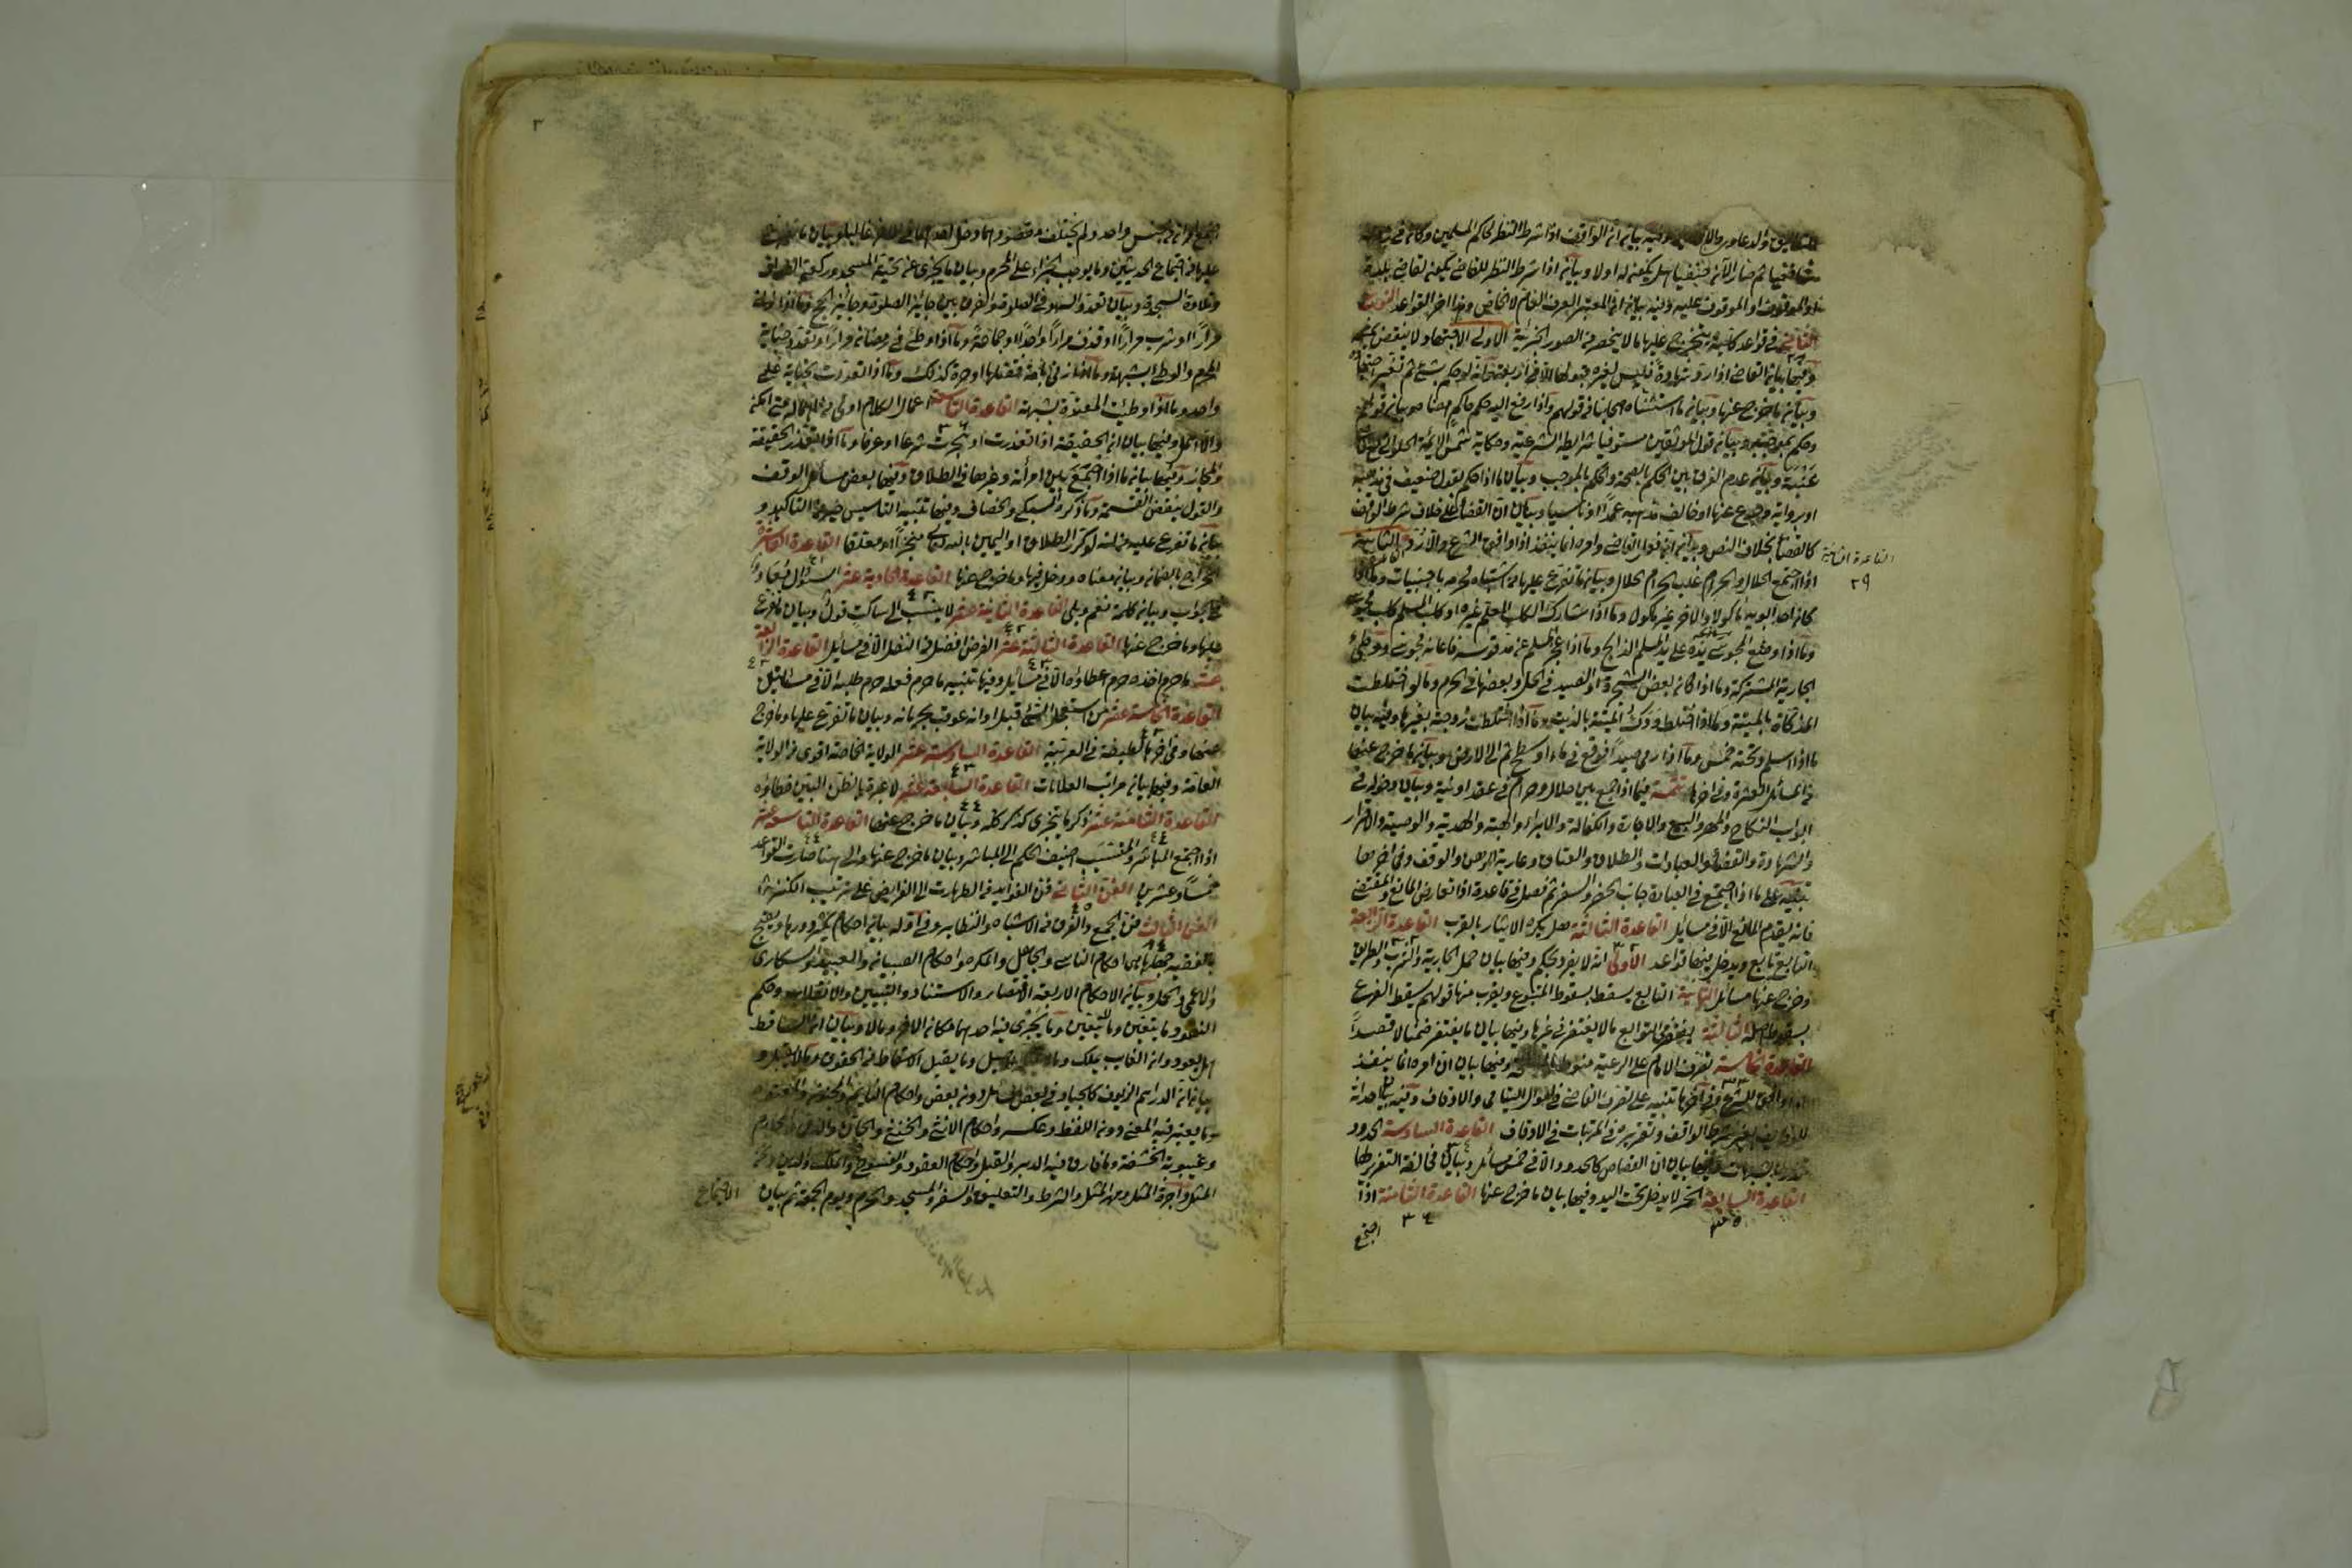 وفيه بيان ان الواقف اذا شرط النظر لحاكم المسلمين وكان في
شافعيا ثم صار الآن حنفيا هل يكون له اولا وبيان اذا شرط النظر للقاضي هل يكون لقاضي بلدة
الموقوف او الموقوف عليه وفيه بيان ان المعتبر العرف العام لا الخاص وهذا آخر القواعد النوع
الثاني في قواعد كلية يتخرج عليها ما لا ينحصر من الصور الجزئية الاولى الاجتهاد لا ينقض بمثله
وفيها بيان القاضي اذا رد شهادة فليس لغيره قبولها الا في اربعة وانه لو حكم بشئ ثم تغير اجتهاده
وبيان ما خرج عنها وبيان ما استثناه اصحابنا في قولهم واذا رفع اليه حكم حاكم امضاه وبيان قولهم
وحكم بموجبه وبيان قول الموثقين مستوفيا شرايطه الشرعية وحكاية شمس الائمة الحلواني مع قاضي
عنبسة وبيان عدم الفرق بين الحكم بالصحة والحكم بالموجب وبيان ما اذا حكم بقول ضعيف في مذهبه
او برواية مرجوع عنها او خالف مذهبه عمدا او ناسيا وبيان ان القضاء على خلاف شرط الواقف
كالقضاء بخلاف النص وبيان ان فعل القاضي وامره انما ينفذ اذا وافق الشرع والا رد الثانية
القاعدة الثانية
٢٩
اذا اجتمع الحلال والحرام غلب الحرام الحلال وبيان ما تفرع عليها من اشتباه محرمه باجنبيات وما اذا
كان احد ابويه مأكولا والاخر غير مأكول وما اذا شارك الكلب المعلم غيره او كلب المسلم كلب مجوسي
وما اذا وضع المجوسي يده على يد المسلم الذابح وما اذا عجز المسلم عن مد قوسه فاعانه مجوسي ووطئ
الجارية المشتركة وما اذا كان بعض الشجرة او الصيد في الحل وبعضها في الحرم وما لو اختلطت
المذكاة بالميتة وما اذا اختلط ودك الميتة بالزيت وما اذا اختلطت زوجته بغيرها وفيه بيان
ما اذا اسلم وتحته خمس وما اذا رمى صيدا فوقع في ماء او سطح ثم الى الارض وبيان ما خرج عنها
من المسائل العشرة وفي اخرها تتمة فيما اذا جمع بين حلال وحرام في عقد او نية وبيان دخوله في
ابواب النكاح والمهر والبيع والاجارة والكفالة والابراء والهبة والهدية والوصية والاقرار
والشهادة والقضاء والعبادات والطلاق والعتاق وعارية الرهن والوقف وفي اخرها
تنبيه على ما اذا اجتمع في العبادة جانب الحضر والسفر ثم فصل في قاعدة اذا تعارض المانع والمقتضي
فانه يقدم المانع الا في مسائل القاعدة الثالثة هل يكره الايثار بالقرب القاعدة الرابعة
التابع تابع ويدخل فيها قواعد الاولى انه لا يفرد بحكم وفيها بيان حمل الجارية والشرب والطريق
وخرج عنها مسائل الثانية التابع يسقط بسقوط المتبوع ويقرب منها قولهم يسقط الفرع
بسقوط اصله الثالثة يغتفر في التوابع ما لا يغتفر في غيرها وفيها بيان ما يغتفر ضمنا لا قصدا
القاعدة الخامسة تصرف الامام على الرعية منوط بالمصلحة وفيها بيان ان امره انما ينفذ
اذا وافق الشرع وفي آخرها تنبيه على تصرف القاضي في اموال اليتامى والاوقاف وفيه بيان احداثه
للوظايف بغير شرط الواقف وتقريره في المرتبات في الاوقاف القاعدة السادسة الحدود
تدرء بالشبهات وفيها بيان ان القصاص كالحدود الا في خمس مسائل وبيان مخالفة التعزير لها
القاعدة السابعة الحر لا يدخل تحت اليد وفيها بيان ما خرج عنها القاعدة الثامنة اذا
٣٥
٣٤
اجتمع
٣
اجتمع امران من جنس واحد ولم يختلف مقصودهما دخل احدهما في الاخر غالبا وبيان ما تفرع
عليها من اجتماع الحدثين وما يوجب الجزاء على المحرم وبيان ما يجزى عن تحية المسجد وركعتي الطواف
وتلاوة السجدة وبيان تعدد السهو في الصلوة والفرق بين جابر الصلوة وجابر الحج وما اذا زنى
مرارا او شرب مرارا او قذف مرارا واحدا او جماعة وما اذا وطئ في رمضان مرارا وتعدد جناية
المحرم والوطئ بشبهة وما اذا زنى بامة فقتلها او حرة كذلك وما اذا تعددت الجناية على
واحد وما اذا وطئت المعتدة بشبهة القاعدة التاسعة اعمال الكلام اولى من اهماله متى امكن
والا اهمل وفيها بيان ان الحقيقة اذا تعذرت او هجرت شرعا او عرفا وما اذا تعذر الحقيقة
والمجاز وفيها بيان ما اذا جمع بين امرأته وغيرها في الطلاق وفيها بعض مسائل الوقف
والقول بنقض القسمة وما ذكره السبكي والخصاف وفيها تنبيه التاسيس خير من التاكيد و
بيان ما تفرع عليه من انه لو كرر الطلاق او اليمين بالله تعالى منجزا او معلقا القاعدة العاشرة
الخراج بالضمان وبيان معناه وما دخل فيها وما خرج عنها القاعدة الحادية عشر السؤال معاد
في الجواب وبيان كلمة نعم وبلى القاعدة الثانية عشر لا ينسب الى ساكت قول وبيان ما تفرع
عليها وما خرج عنها القاعدة الثالثة عشر الفرض افضل من النفل الا في مسائل القاعدة الرابعة
عشر ما حرم اخذه حرم اعطاؤه الا في مسائل وفيها تنبيه ما حرم فعله حرم طلبه الا في مسئلتين
القاعدة الخامسة عشر من استعجل الشئ قبل اوانه عوقب بحرمانه وبيان ما تفرع عليها وما خرج
عنها وفي اخرها لطيفة في العربية القاعدة السادسة عشر الولاية الخاصة اقوى من الولاية
العامة وفيها بيان مراتب الولايات القاعدة السابعة عشر لا عبرة بالظن البين خطاؤه
القاعدة الثامنة عشر ذكر ما يتجزى كذكر كله وبيان ما خرج عنها القاعدة التاسعة عشر
اذا اجتمع المباشر والمتسبب اضيف الحكم الى المباشر وبيان ما خرج عنها والى هنا صارت القواعد
خمسا وعشرين الفن الثاني فن الفوايد من الطهارت الى الفرايض على ترتيب الكنز
الفن الثالث فن الجمع والفرق من الاشباه والنظاير وفي اوله بيان احكام يكثر دورها ويقبح
بالفقيه جهلها هي احكام الناسي والجاهل والمكره واحكام الصبيان والعبيد والسكارى
والاعمى والحمل وبيان الاحكام الاربعة الاقتصار والاستناد والتبيين والانقلاب وحكم
النقود وما يتعين وما لا يتعين وما يجرى فيه احدهما مكان الاخر وما لا وبيان ان الساقط
هل يعود وان النايب يملك وما يقبل الاسقاط من الحقوق وما لا يقبل و
بيان ان الدراهم الزيوف كالجياد في بعض المسائل دون بعض واحكام النايم والمجنون والمعتوه
وما يعتبر فيه المعنى دون اللفظ وعكسه واحكام الانثى والخنثى والجان والذمي والمحارم
وغيبوبة الحشفة وما فارق فيه الدبر والقبل واحكام العقود والفسوخ والملك والدين
المثل واجرة المثل ومهر المثل والشرط والتعليق والسفر والمسجد والحرم ويوم الجمعة ثم بيان
الاجتماع